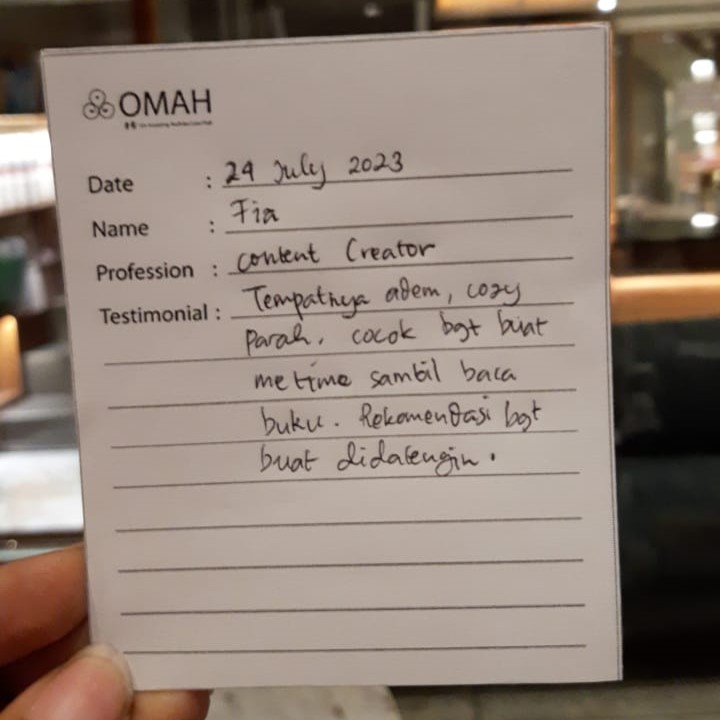 OMAH
Date : 24 July 2023
Name : Fia
Profession : content Creator
Testimonial : Tempatnya adem, cozy
parah. cocok bgt buat
me time sambil baca
buku. Rekomendasi bgt
buat didatengin.